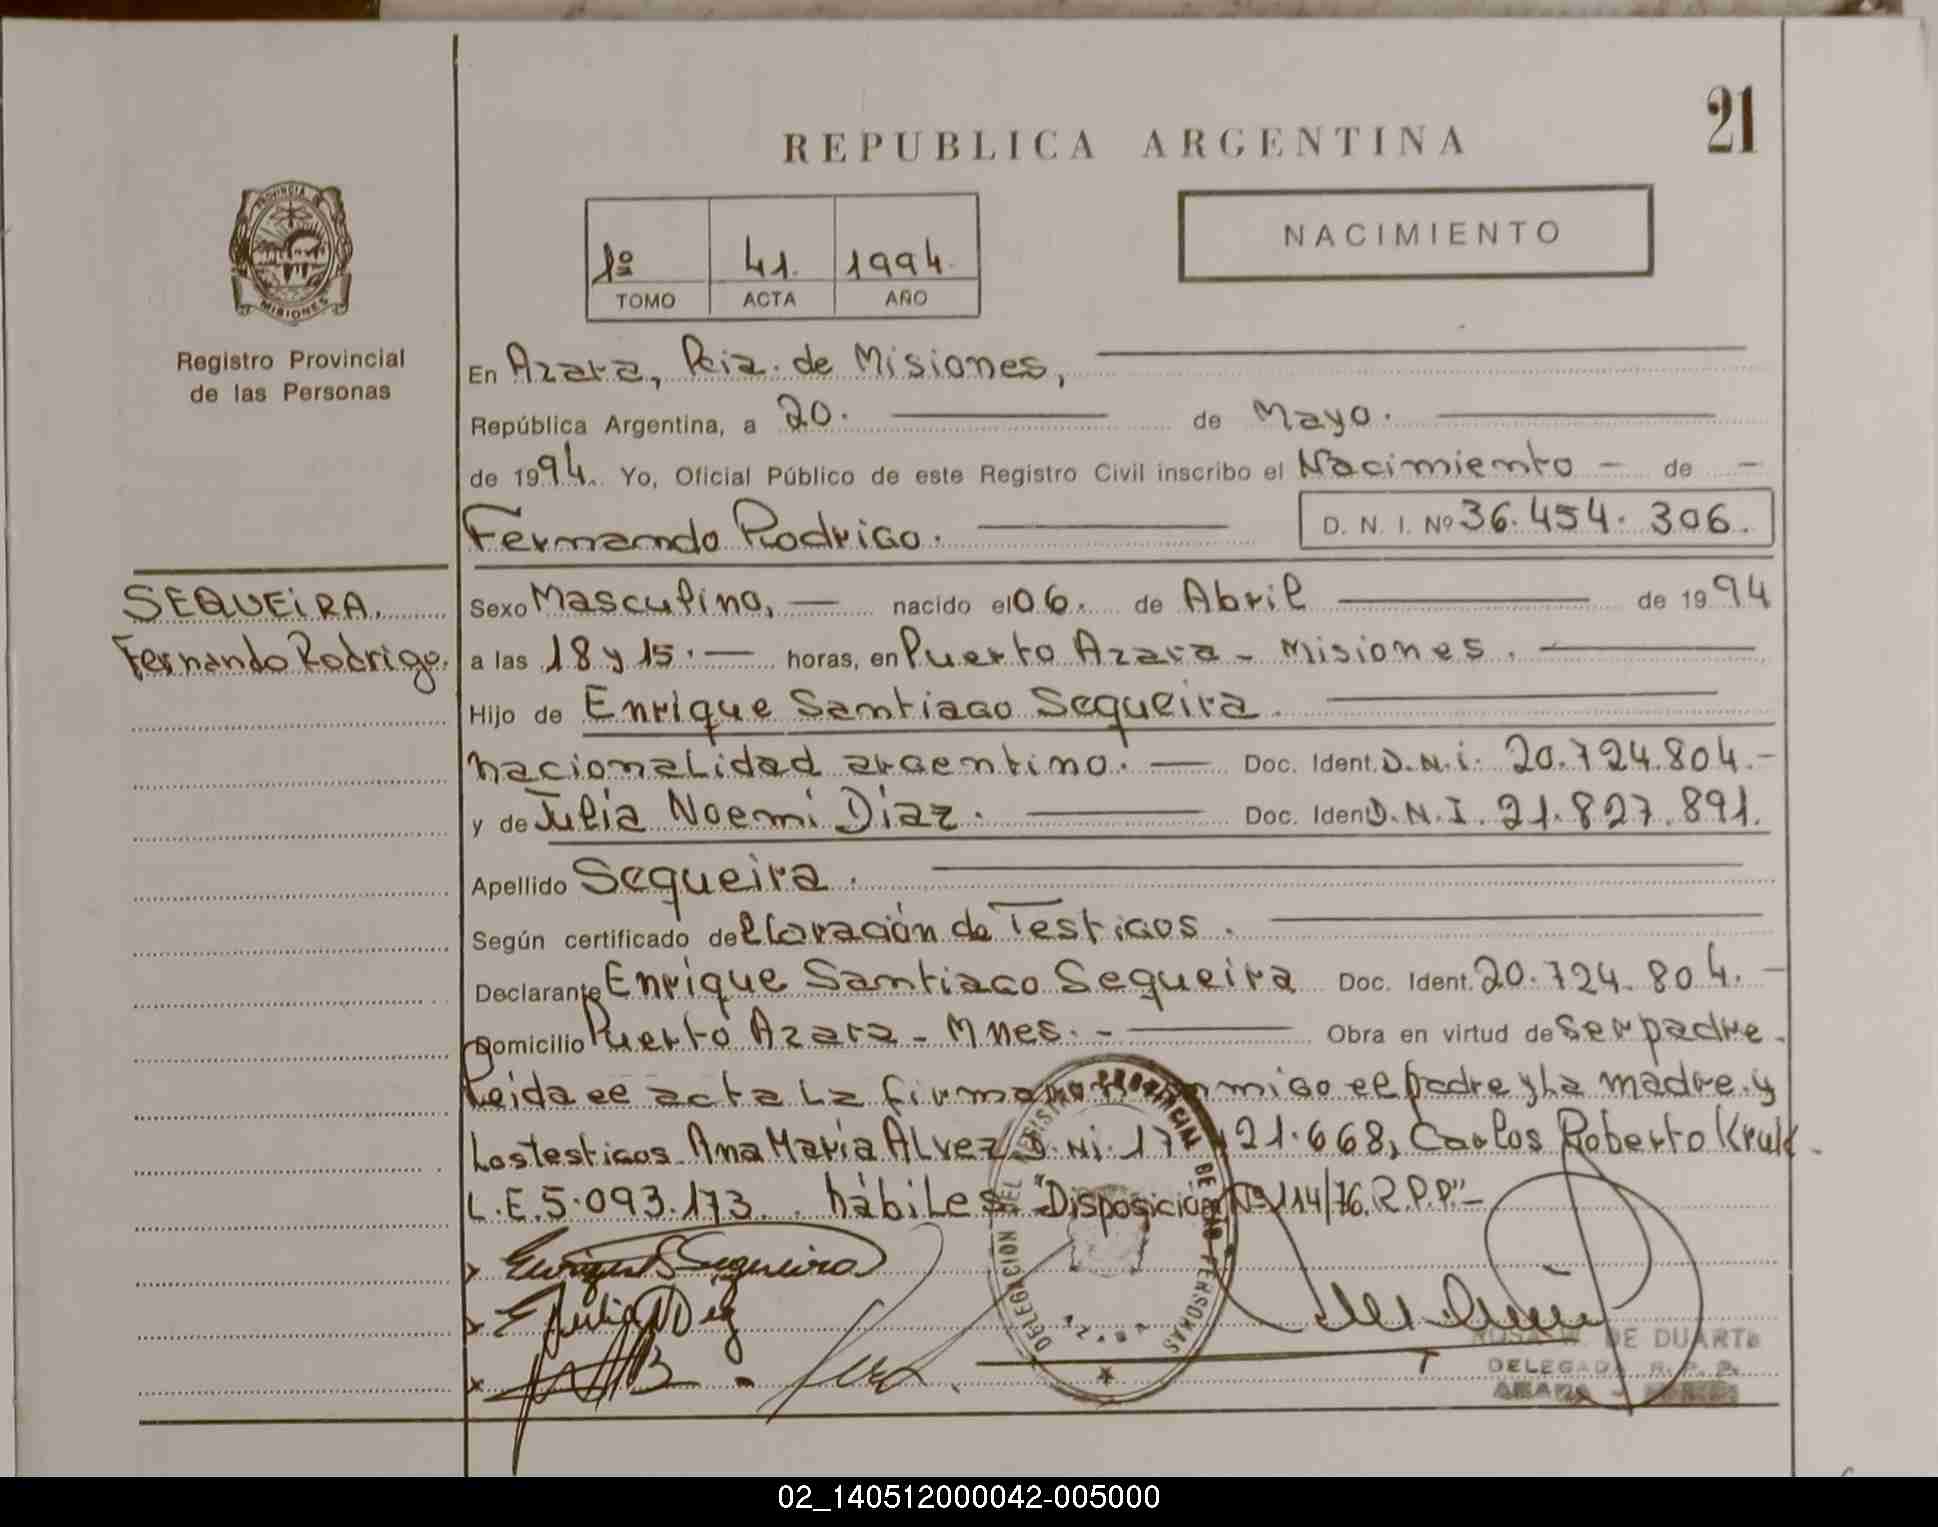 21
REPUBLICA ARGENTINA
PROVINCIA DE
MISIONES
1º 41. 1994.
TOMO ACTA AÑO
NACIMIENTO
Registro Provincial
de las Personas
En Azara, Pcia. de Misiones,
República Argentina, a 20. de Mayo.
de 1994. Yo, Oficial Público de este Registro Civil inscribo el Nacimiento - de -
Fernando Rodrigo. D. N. I. Nº 36.454.306.
SEQUEIRA,
Fernando Rodrigo.
Sexo Masculino, — nacido el 06. de Abril de 1994
a las 18 y 15. — horas, en Puerto Azara - Misiones.
Hijo de Enrique Santiago Sequeira.
nacionalidad argentino. — Doc. Ident. D.N.i. 20.724.804.-
y de Julia Noemi Diaz. Doc. Ident D.N.I. 21.827.891.
Apellido Sequeira.
Según certificado declaración de Testigos.
Declarante Enrique Santiago Sequeira Doc. Ident. 20.724.804. -
Domicilio Puerto Azara - Mnes. - Obra en virtud de ser padre -
Leida el acta la firma conmigo el padre y la madre. y
Los testigos Ana María Alvez D.Ni. 17 21.668, Carlos Roberto
L.E. 5.093.173. hábiles "Disposición Nº 114/76. R.P.P."-
DELEGACION DEL REGISTRO PROVINCIAL DE LAS PERSONAS
AZARA
Enrique S Sequeira
Julia N Diaz
ROSA DE DUARTE
DELEGADA R. P. P.
AZARA -
02_140512000042-005000